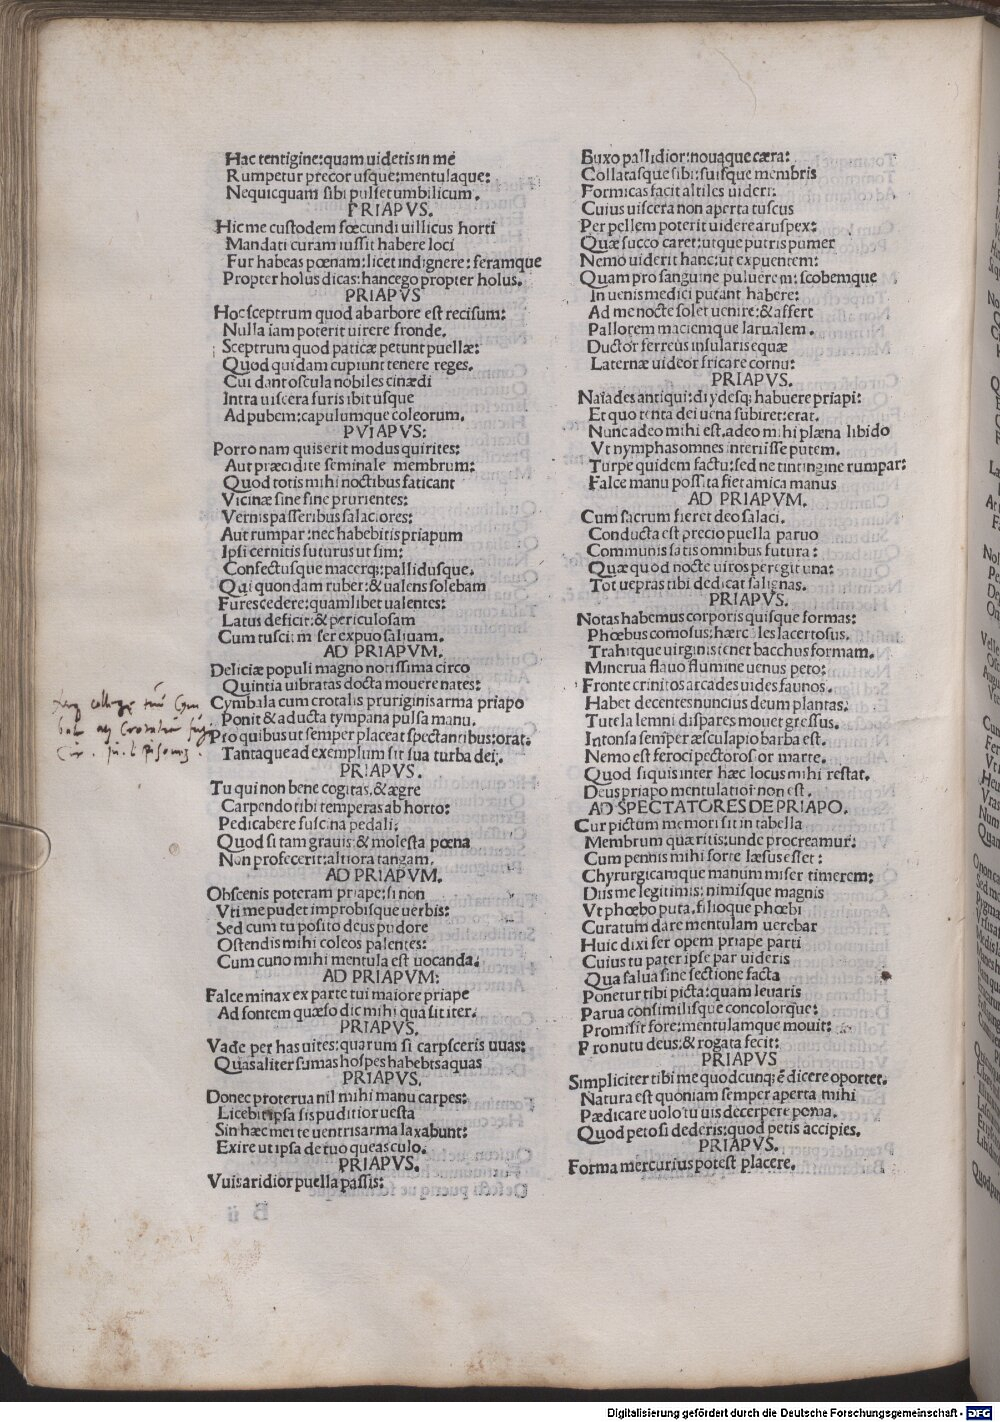 Hac tentigine: quam uidetis in me
Rumpetur precor usque: mentulaque:
Nequicquam sibi pulset umbilicum.
PRIAPVS.
Hic me custodem fœcundi uillicus horti
Mandati curam iussit habere loci
Fur habeas pœnam: licet indignere: feramque
Propter holus dicas: hancego propter holus.
PRIAPVS
Hoc sceptrum quod ab arbore est recisum:
Nulla iam poterit uirere fronde.
Sceptrum quod paticæ petunt puellæ:
Quod quidam cupiunt tenere reges.
Cui dant oscula nobiles cinædi
Intra uiscera furis ibit usque
Ad pubem: capulumque coleorum.
PVIAPVS:
Porro nam quis erit modus quirites:
Aut præcidite seminale membrum:
Quod totis mihi noctibus faticant
Vicinæ sine fine prurientes:
Vernis passeribus salaciores:
Aut rumpar: nec habebitis priapum
Ipsi cernitis futurus ut sim:
Confectusque macerq; pallidusque.
Qui quondam ruber: & ualens solebam
Fures cedere: quamlibet ualentes:
Latus deficit: & periculosam
Cum tussi: m ser expuo saliuam.
AD PRIAPVM.
Deliciæ populi magno notissima circo
Quintia uibratas docta mouere nates:
Cymbala cum crotalis pruriginis arma priapo
Ponit & aducta tympana pulsa manu.
Pro quibus ut semper placeat spectantibus: orat.
Tantaque ad exemplum sit sua turba dei:
PRIAPVS.
Tu qui non bene cogitas, & ægre
Carpendo tibi temperas ab horto:
Pedicabere fuscina pedali:
Quod si tam grauis & molesta pœna
Non profecerit: altiora tangam.
AD PRIAPVM.
Obscenis poteram priape: si non
Vti me pudet improbisque uerbis:
Sed cum tu posito deus pudore
Ostendis mihi coleos patentes:
Cum cuno mihi mentula est uocanda.
AD PRIAPVM:
Falce minax ex parte tui maiore priape
Ad fontem quæso dic mihi qua sit iter.
PRIAPVS.
Vade per has uites: quarum si carpsceris uuas:
Quas aliter sumas hospes habebtsaquas
PRIAPVS.
Donec proterua nil mihi manu carpes:
Licebit ipsa sis puditior uesta
Sin hæc mei te uentris arma laxabunt:
Exire ut ipsa de tuo queas culo.
PRIAPVS.
Vuis aridior puella passis:
Buxo pallidior: nouaque cæra:
Collatasque sibi: suisque membris
Formicas facit altiles uideri:
Cuius uiscera non aperta tuscus
Per pellem poterit uidere aruspex:
Quæ succo caret: ut que putris pumex
Nemo uiderit hanc: ut expuentem:
Quam pro sanguine puluerem: scobemque
In uenis medici putant habere:
Ad me nocte solet uenire: & affert
Pallorem maciemque larualem.
Ductor ferreus insularis equæ
Laternæ uideor fricare cornu:
PRIAPVS.
Naiades antiqui: drydesq; habuere priapi:
Et quo tenta dei uena subiret: erat.
Nunc adeo mihi est, adeo mihi plæna libido
Vt nymphas omnes interiisse putem.
Turpe quidem factu: sed ne tintingine rumpar:
Falce manu possita fiet amica manus
AD PRIAPVM.
Cum sacrum fieret deo salaci.
Conducta est precio puella paruo
Communis satis omnibus futura:
Quæ quod nocte uiros peregit una:
Tot uepras tibi dedicat salignas.
PRIAPVS.
Notas habemus corporis quisque formas:
Phœbus comosus: hærc les lacertosus.
Trahit que uirginis tenet bacchus formam.
Minerua flauo flumine uenus peto:
Fronte crinitos arcades uides faunos.
Habet decentes nuncius deum plantas:
Tutela lemni dispares mouet gressus.
Intonsa semper æsculapio barba est.
Nemo est feroci pectorosior marte.
Quod si quis inter hæc locus mihi restat.
Deus priapo mentulatior non est.
AD SPECTATORES DE PRIAPO.
Cur pictum memori sit in tabella
Membrum quæritis: unde procreamur:
Cum pennis mihi forte læsus esset:
Chyrurgicamque manum miser timerem:
Diis me legitimis: nimisque magnis
Vt phœbo puta, filioque phœbi
Curatum dare mentulam uerebar
Huic dixi fer opem priape parti
Cuius tu pater ipse par uideris
Qua salua sine sectione facta
Ponetur tibi picta: quam leuaris
Parua consimilisque concolorque:
Promisit fore: mentulamque mouit:
Pro nutu deus: & rogata fecit:
PRIAPVS
Simpliciter tibi me quodcunq; ē dicere oportet.
Natura est quoniam semper aperta mihi
Pædicare uolo tu uis decerpere poma.
Quod peto si dederis: quod petis accipies.
PRIAPVS.
Forma mercurius potest placere.
Digitalisierung gefördert durch die Deutsche Forschungsgemeinschaft - DFG